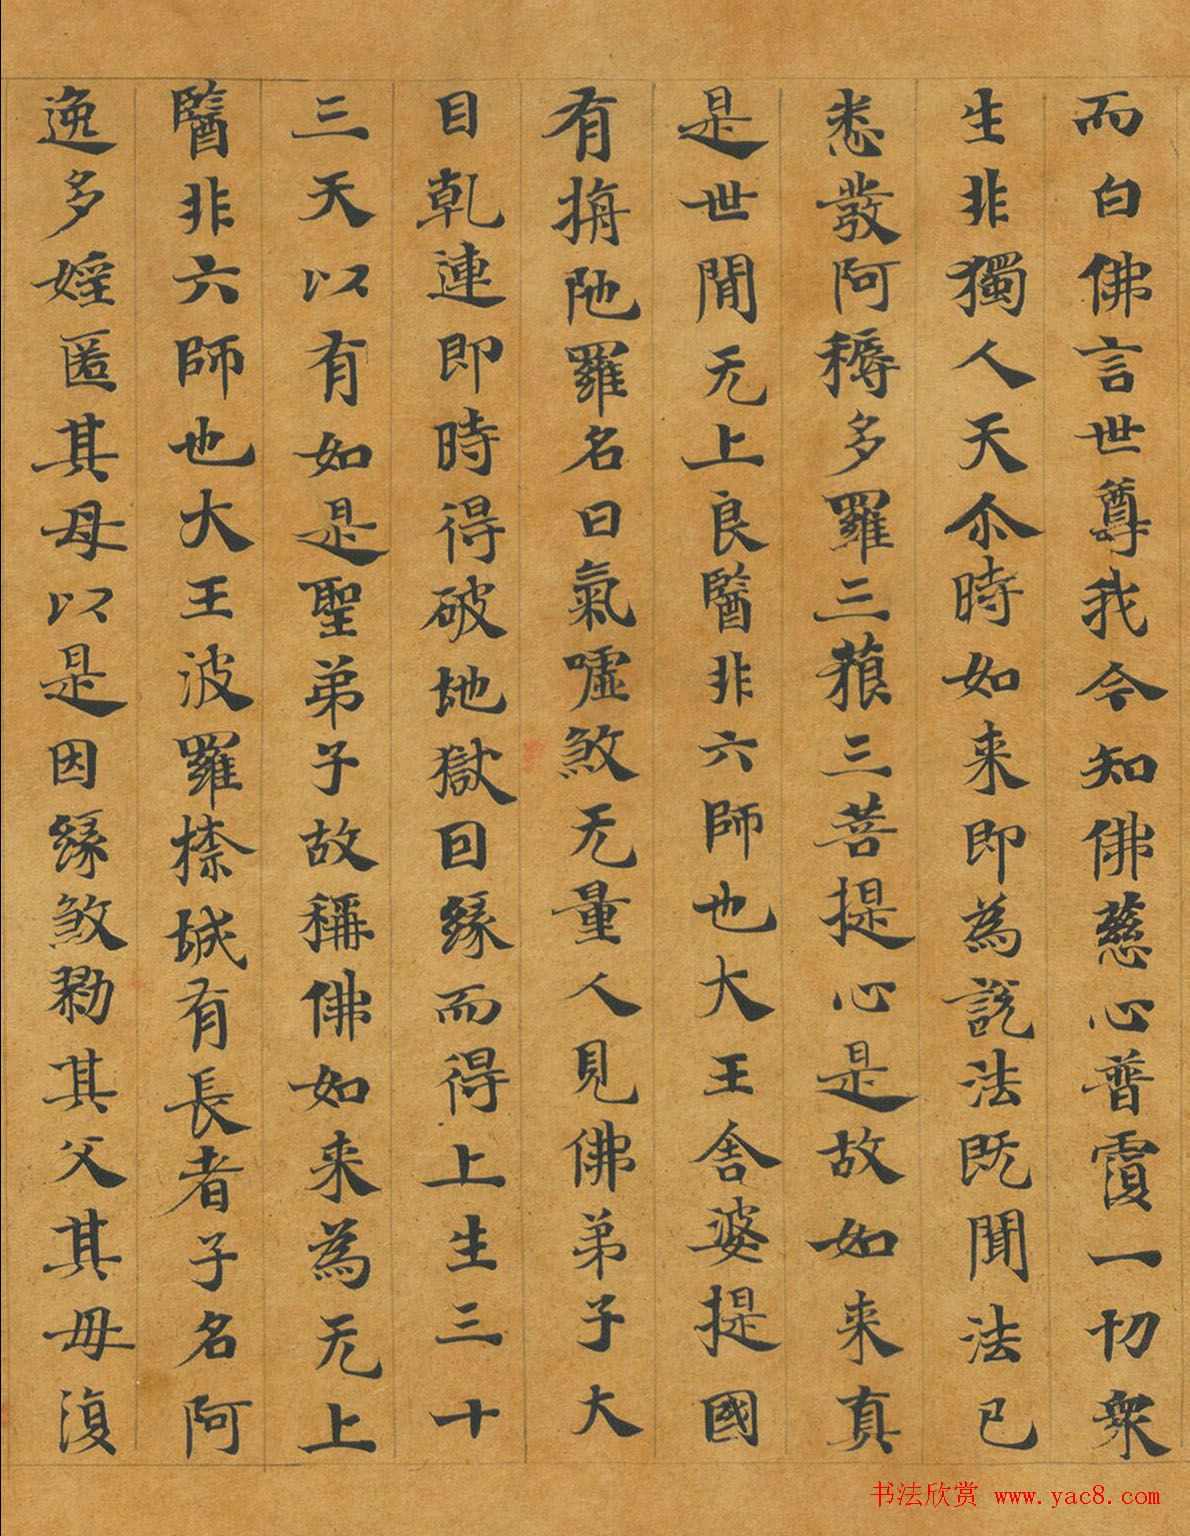 而白佛言世尊我今知佛慈心普覆一切衆
生非獨人天尒時如来即為説法既聞法已
悉發阿耨多羅三藐三菩提心是故如来真
是世間无上良醫非六師也大王舍婆提國
有旃陁羅名曰氣噓煞无量人見佛弟子大
目乹連即時得破地獄因緣而得上生三十
三天以有如是聖弟子故稱佛如来為无上
醫非六師也大王波羅㮈城有長者子名阿
逸多婬匿其母以是因緣煞勠其父其母復
书法欣赏 www.yac8.com